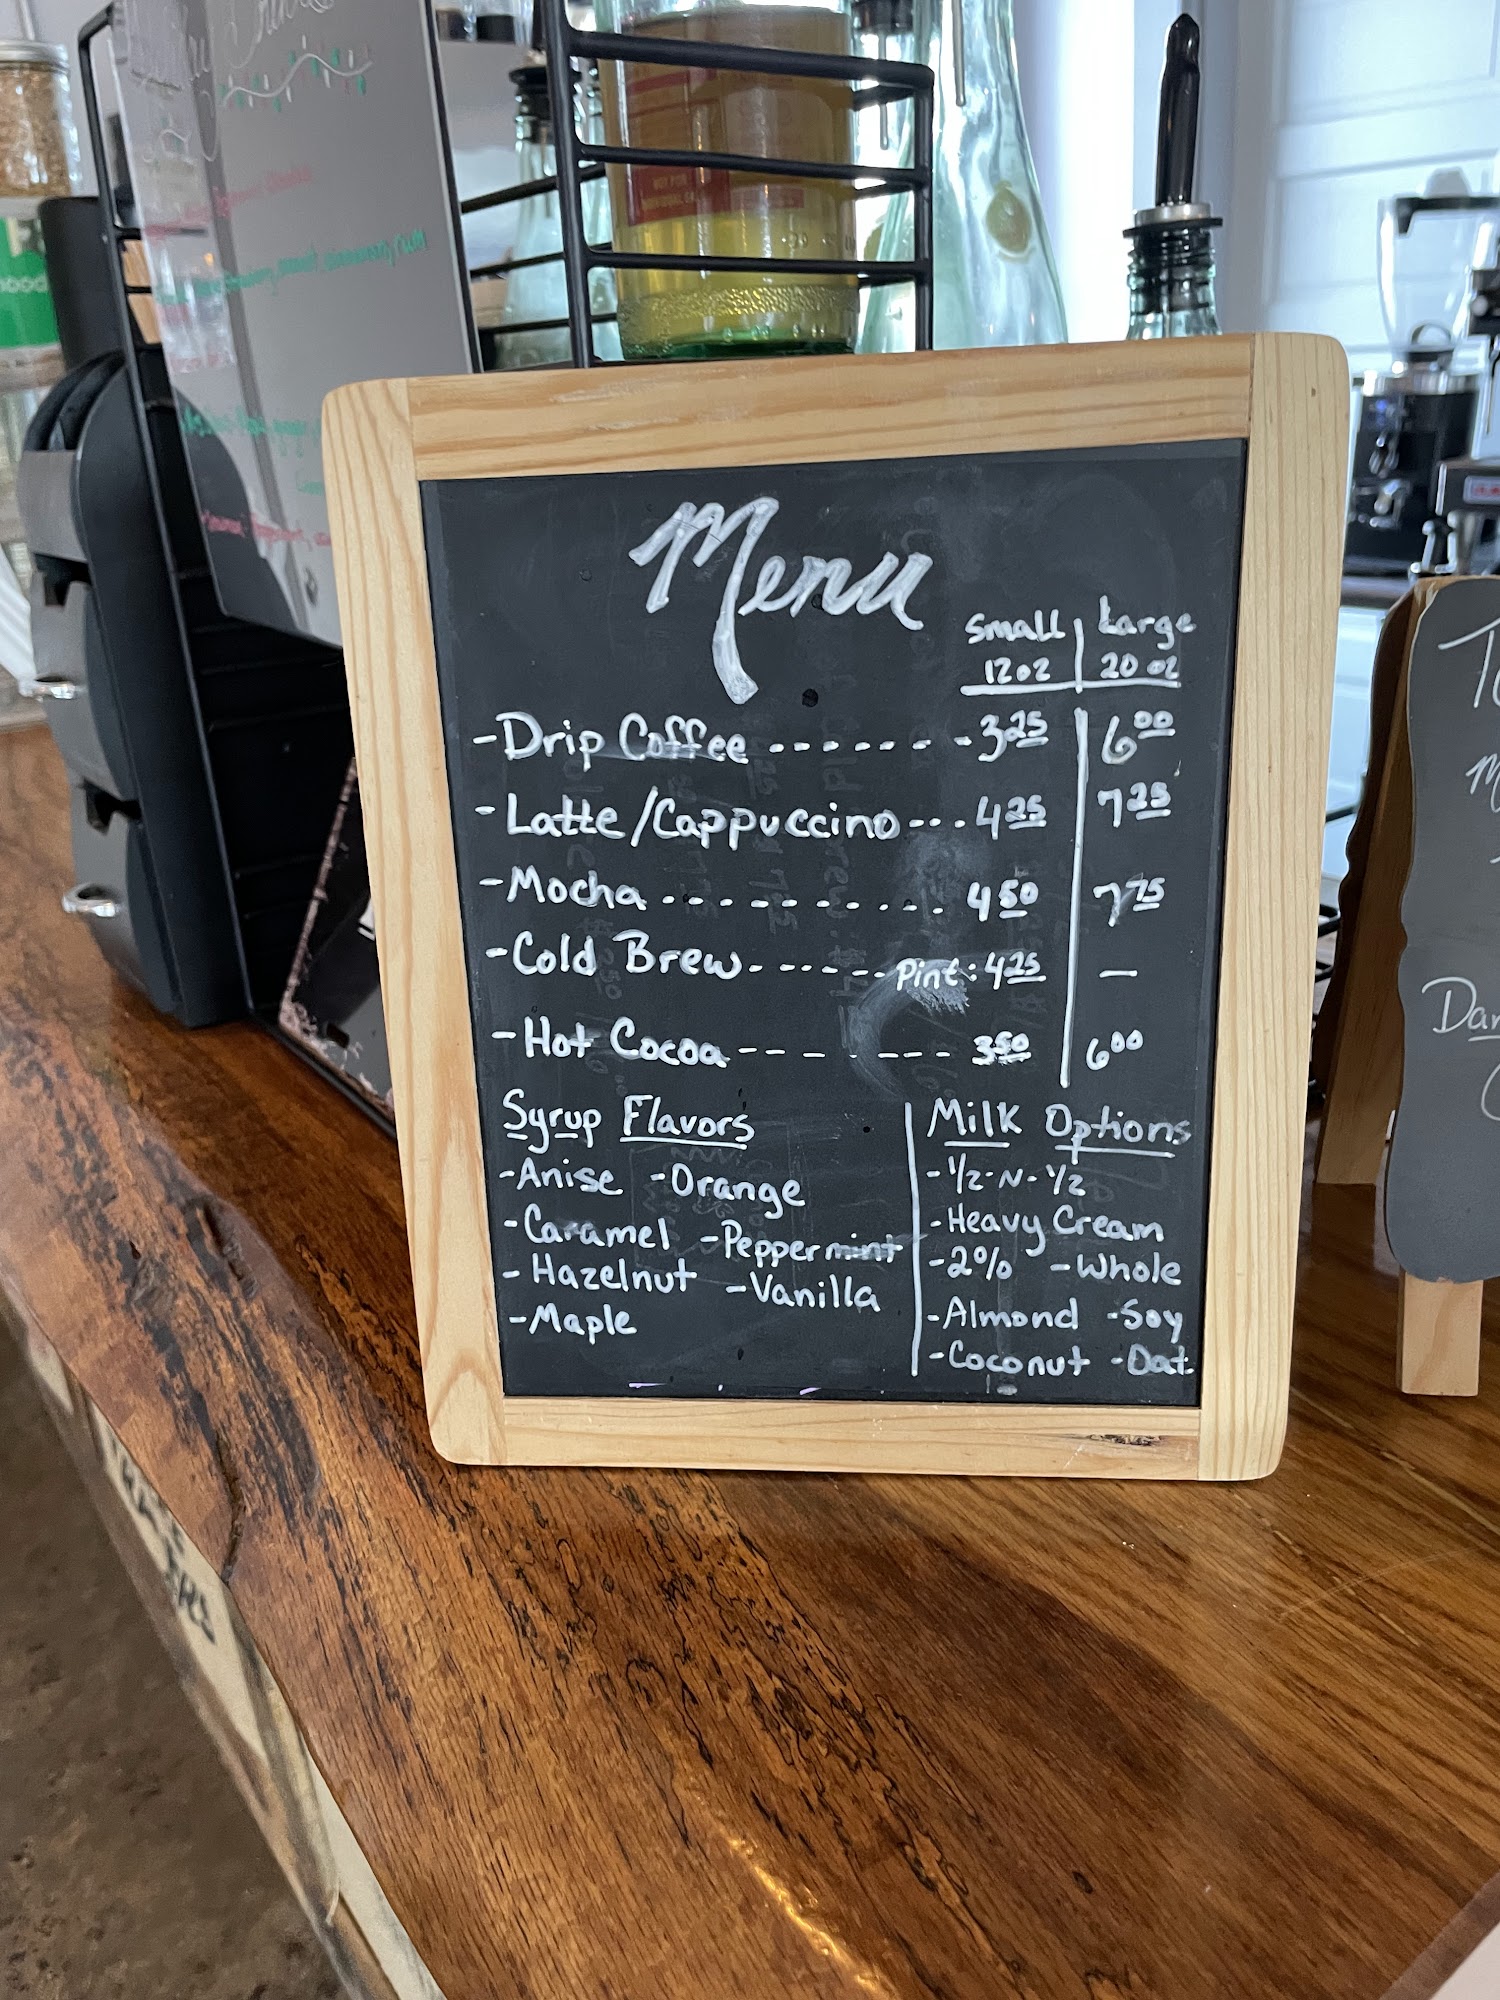 Menu
Small | Large
12oz | 20oz
-Drip Coffee ------- 3.25 | 6.00
-Latte/Cappuccino --- 4.25 | 7.25
-Mocha .......... 4.50 | 7.75
-Cold Brew ------ Pint: 4.25 | —
-Hot Cocoa -------- 3.50 | 6.00
Syrup Flavors
-Anise -Orange
-Caramel -Peppermint
-Hazelnut -Vanilla
-Maple
Milk Options
-1/2-N-1/2
-Heavy Cream
-2% -Whole
-Almond -Soy
-Coconut -Oat